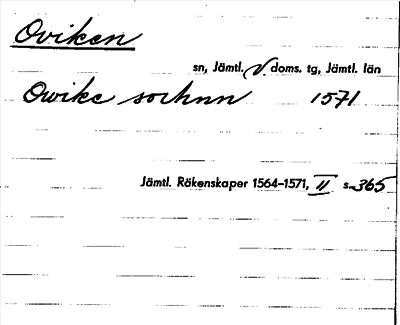 Oviken
sn, Jämtl. V. doms. tg, Jämtl. län
Owike socknn 1571
Jämtl. Räkenskaper 1564–1571, II s. 365